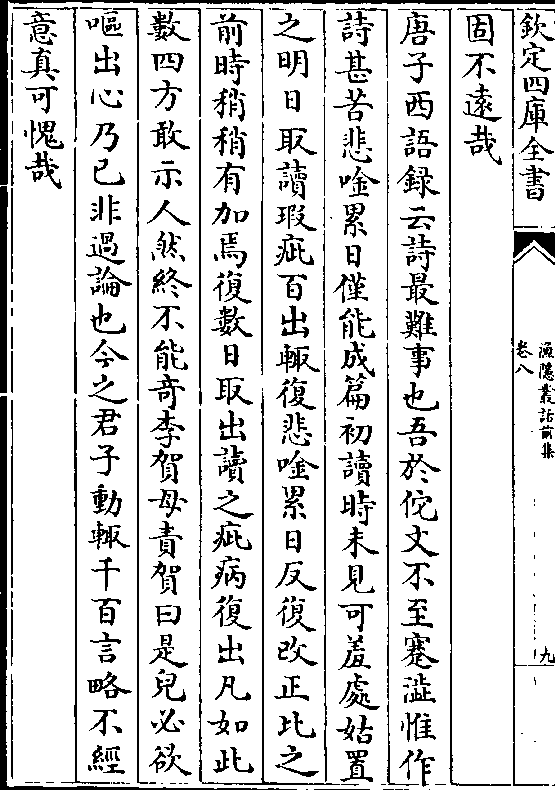 欽定四庫全書
漁隱叢話前集
卷八
九
固不遠哉
唐子西語録云詩最難事也吾於佗文不至蹇澁惟作
詩甚苦悲唫累日僅能成篇初讀時未見可羞處姑置
之明日取讀瑕疵百出輒復悲唫累日反復改正比之
前時稍稍有加焉復數日取出讀之疵病復出凡如此
數四方敢示人然終不能竒李賀母責賀曰是兒必欲
嘔出心乃已非過論也今之君子動輒千百言略不經
意真可愧哉